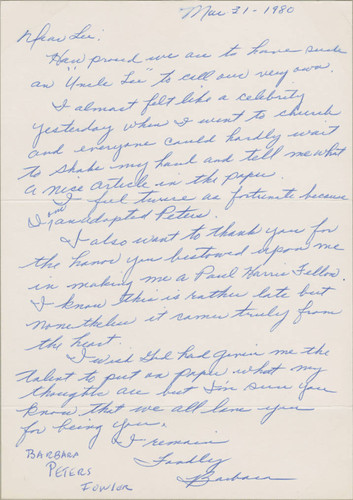 Mar 31-1980
Dear Lee:
How proud we are to have such
an "Uncle Lee" to call our very own.
I almost felt like a celebrity
yesterday when I went to church
and everyone could hardly wait
to shake my hand and tell me what
a nice article in the paper.
I feel twice as fortunate because
I am an adopted Peters.
I also want to thank you for
the honor you bestowed upon me
in making me a Paul Harris Fellow.
I know this is rather late but
nonetheless it comes truly from
the heart.
I wish God had given me the
talent to put on paper what my
thoughts are but I'm sure you
know that we all love you
for being you.
I remain
Fondly
Barbara
BARBARA
PETERS